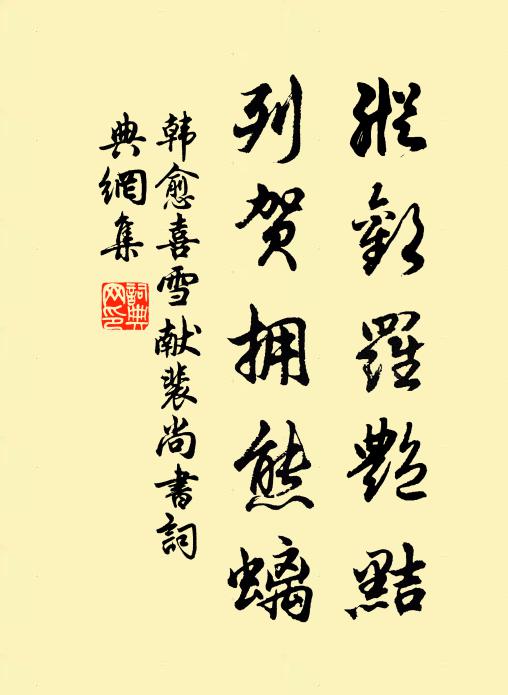 縱歡羅艷黠
列贺拥熊螭
韩愈喜雪献裴尚書詞
典網集
詞典网印